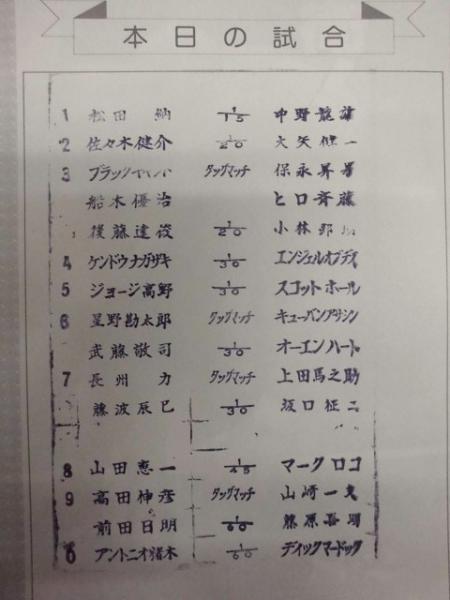 本日の試合
1 松田 納 1/15 中野龍雄
2 佐々木健介 1/20 大矢健一
3 ブラック タッグマッチ 保永昇男
船木優治 ヒロ斉藤
後藤達俊 1/20 小林邦
4 ケンドウナガサキ 1/30 エンジェルオブデス
5 ジョージ高野 1/30 スコットホール
6 星野勘太郎 タッグマッチ キューバンアサシン
武藤敬司 1/30 オーエンハート
7 長州 力 タッグマッチ 上田馬之助
藤波辰巳 1/30 坂口征二
8 山田恵一 1/45 マークロコ
9 高田伸彦 タッグマッチ 山崎一夫
前田日明 1/60 藤原喜明
0 アントニオ猪木 1/60 ディックマードック